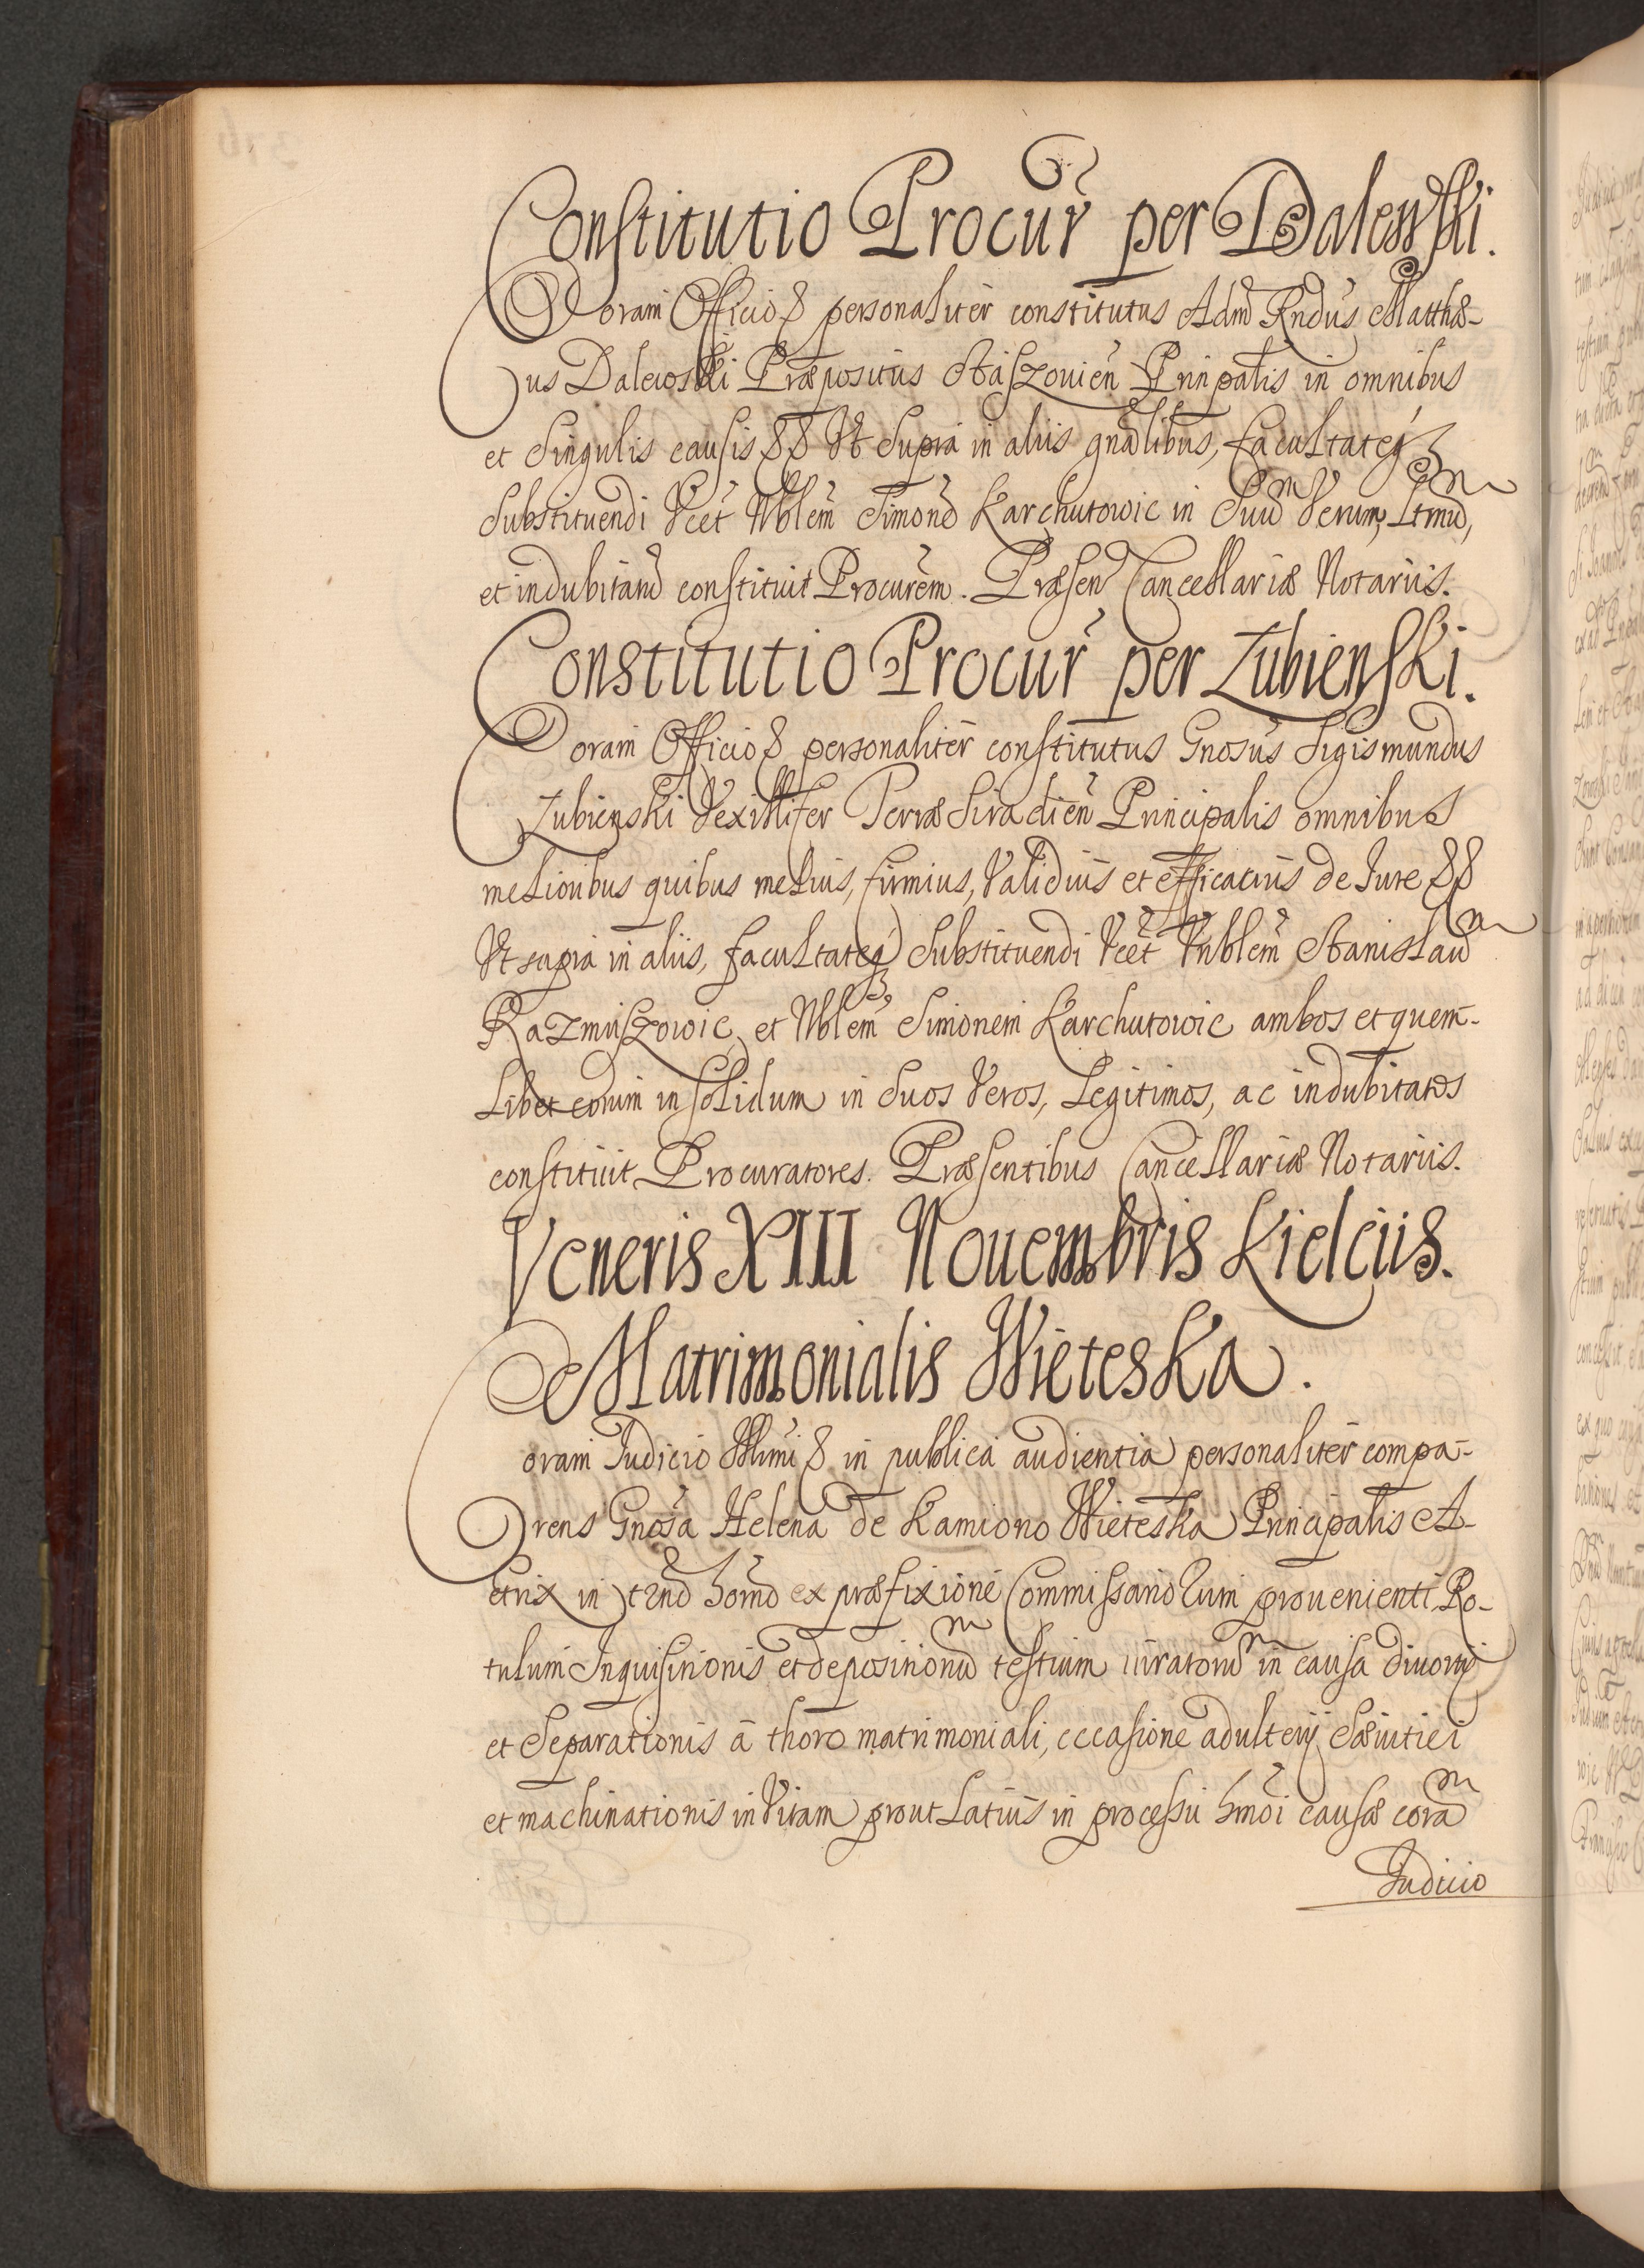 Constitutio Procur̃ per Dalewski.
Coram Officio & personalitèr constitutus Adm̃ Rndus Matthæ-
us Dalewski Præpositus Staszouien̄ Prinpalis in omnibus
et Singulis causis && Vt Supra in aliis gnālibus, facultateq́
Substituendi Vcèt Nblēm Simonē Karchutowic in Suū Verum, Ltmū,
et indubitanū constituit Procurēm. Præsen Cancellariæ Notariis.
Constitutio Procur̃ per Łubienski.
Coram Officio & personalitèr constitutus Gnosus Sigismundus
Łubienski Vexillifer Terræ Siradien̄ Principalis omnibus
melioribus quibus melius, firmius, Validius et efficacius de Iure &&
Vt supra in aliis, facultateq́ Substituendi Vcèt Nblēm Stanislaū
Kazmirszowic, et Nblēm Simonem Karchutowic ambos et quem-
Libet eorum in solidum in Suos Veros, Legitimos, ac indubitatos
constituit Procuratores. Præsentibus Cancellariæ Notariis.
Veneris XIII Nouembris Kielciis.
Matrimonialis Wieteska.
Coram Iudicio Illmi & in publica audientia personalitèr compa-
rens Gnosa Helena de Kamiono Wieteska Principalis A-
ctrix in ex præfixione Commissariorum prouenienti Ro-
tulum Inquisitionis et depositionū testium iuratorū in causa diuortij
et Separationis à thoro matrimoniali, occasione adulterij Sæuitiei
et machinationis in Vitam prout Latius in processu hm̃oi causæ corā
Iudicio